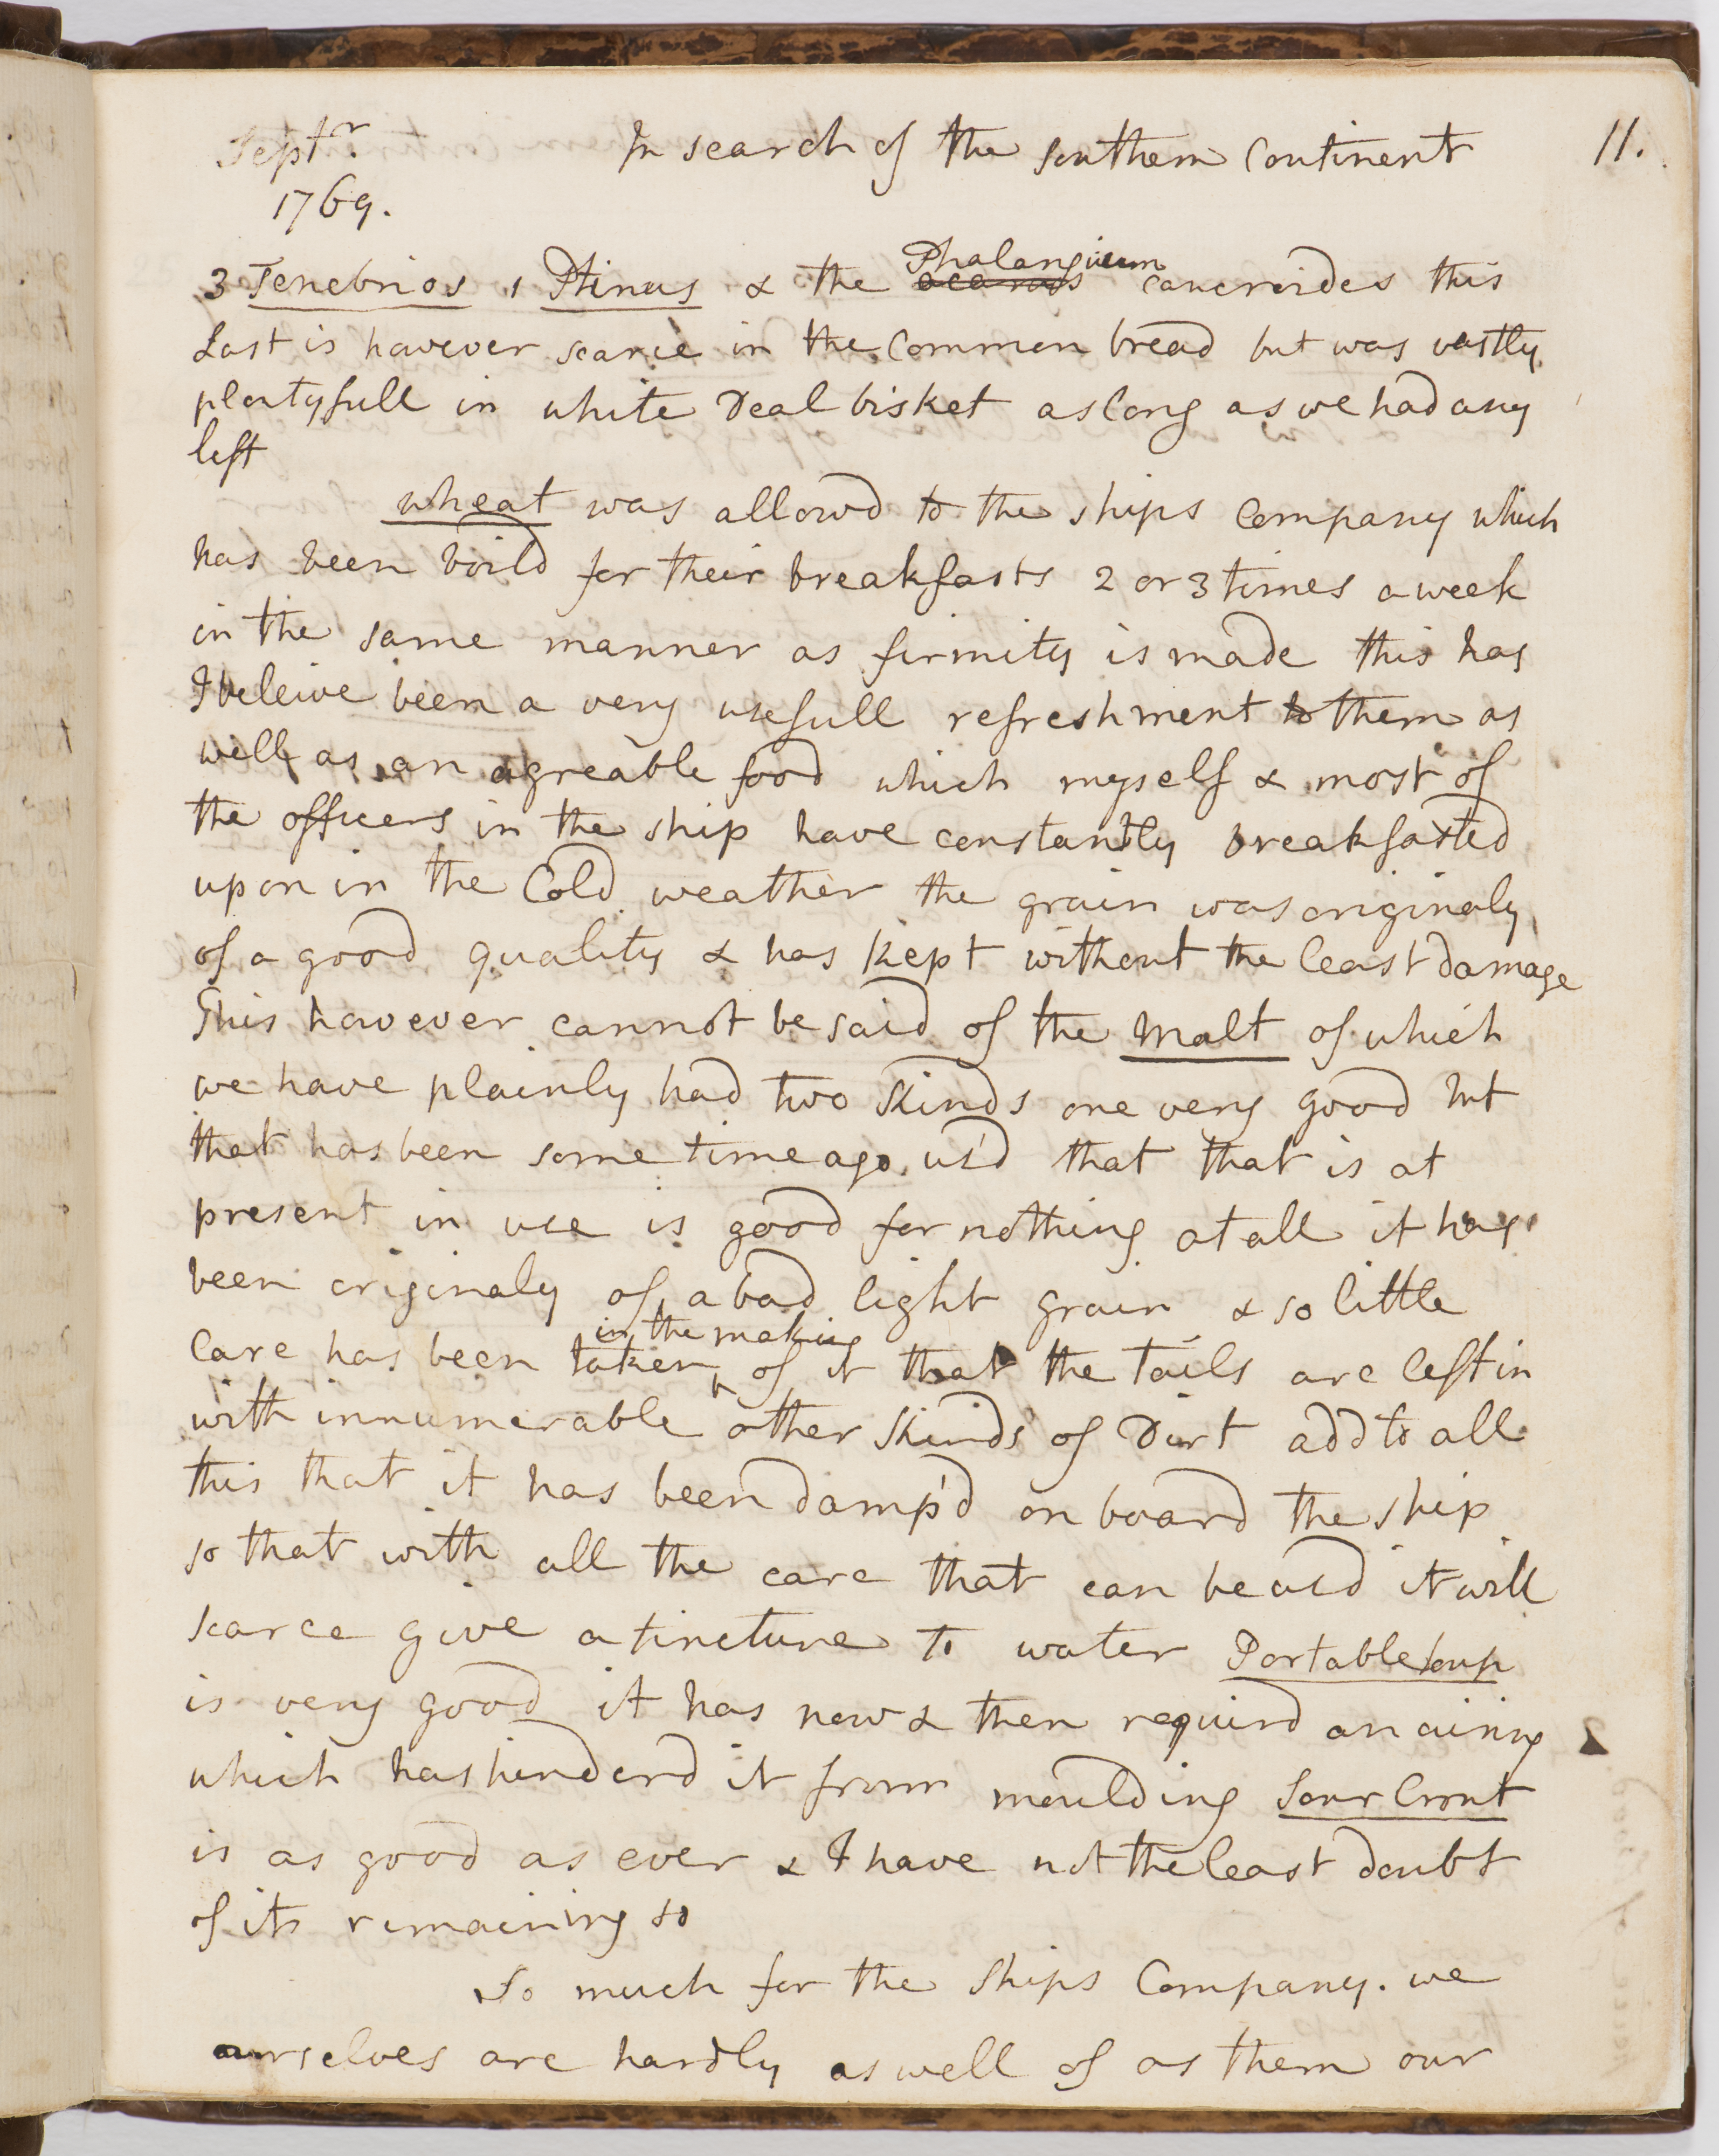 Septr. In search of the southern continent 11.
1769.
3 Tenebrios 1 Ptinus & the acarus Phalangium cancroides this
Last is however scarce in the common bread but was vastly
plentyfull in white Deal bisket as long as we had any
left
wheat was allowd to the ships company which
has been boild for their breakfasts 2 or 3 times a week
in the same manner as firmity is made this has
I beleive been a very usefull refreshment to them as
well as an agreable food which myself & most of
the officers in the ship have constantly breakfasted
upon in the Cold weather the grain was originaly
of a good quality & has kept without the least damage
This however cannot be said of the Malt of which
we have plainly had two kinds one very good but
that has been some time ago us'd that that is at
present in use is good for nothing at all it has
been originaly of a bad light grain & so little
Care has been taken in the making of it that the tails are left in
with innumerable other kinds of Dirt add to all
this that it has been damp'd on board the ship
so that with all the care that can be usd it will
scarce give a tincture to water Portable soup
is very good it has now & then requird an airing
which has hinderd it from moulding Sour Crout
is as good as ever & I have not the least doubt
of its remaining so
So much for the Ships Company. we
ourselves are hardly as well of as them our